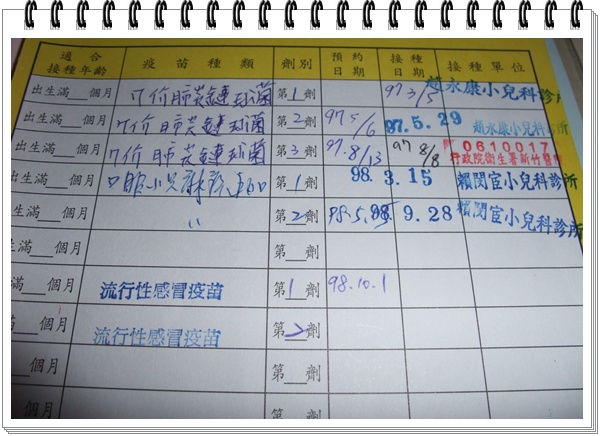 適合接種年齡 疫苗種類 劑別 預約日期 接種日期 接種單位
出生滿__個月 7价肺炎鏈球菌 第1劑 97 3/5 趙永康小兒科診所
出生滿__個月 7价肺炎鏈球菌 第2劑 97 5/6 97.5.29 趙永康小兒科診所
出生滿__個月 7价肺炎鏈球菌 第3劑 97.8/13 97 8/8 0610017 行政院衛生署新竹醫院
出生滿__個月 口服小兒麻 第1劑 98.3.15 賴閔宦小兒科診所
出生滿__個月 〃 第2劑 98. 9.28 賴閔宦小兒科診所
生滿__個月 第__劑
滿__個月 流行性感冒疫苗 第1劑 98.10.1
滿__個月 流行性感冒疫苗 第2劑
__個月 第__劑
個月 第__劑